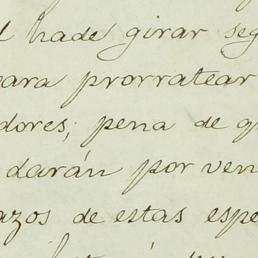 hade girar seg
para prorratear
dores; pena de q
darán por ven
azos de estas espe